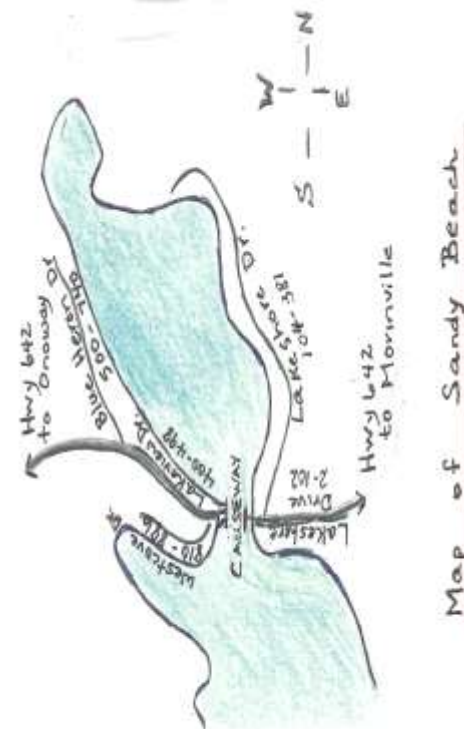 Hwy 642
to Onoway
Blue Heron Dr
500-740
Lakeview Dr.
400-498
Westcove Dr.
CAUSEWAY
Lakeshore Dr.
Lakeshore
Drive
2-102
Hwy 642
to Morinville
W
S — N
E
Map of Sandy Beach